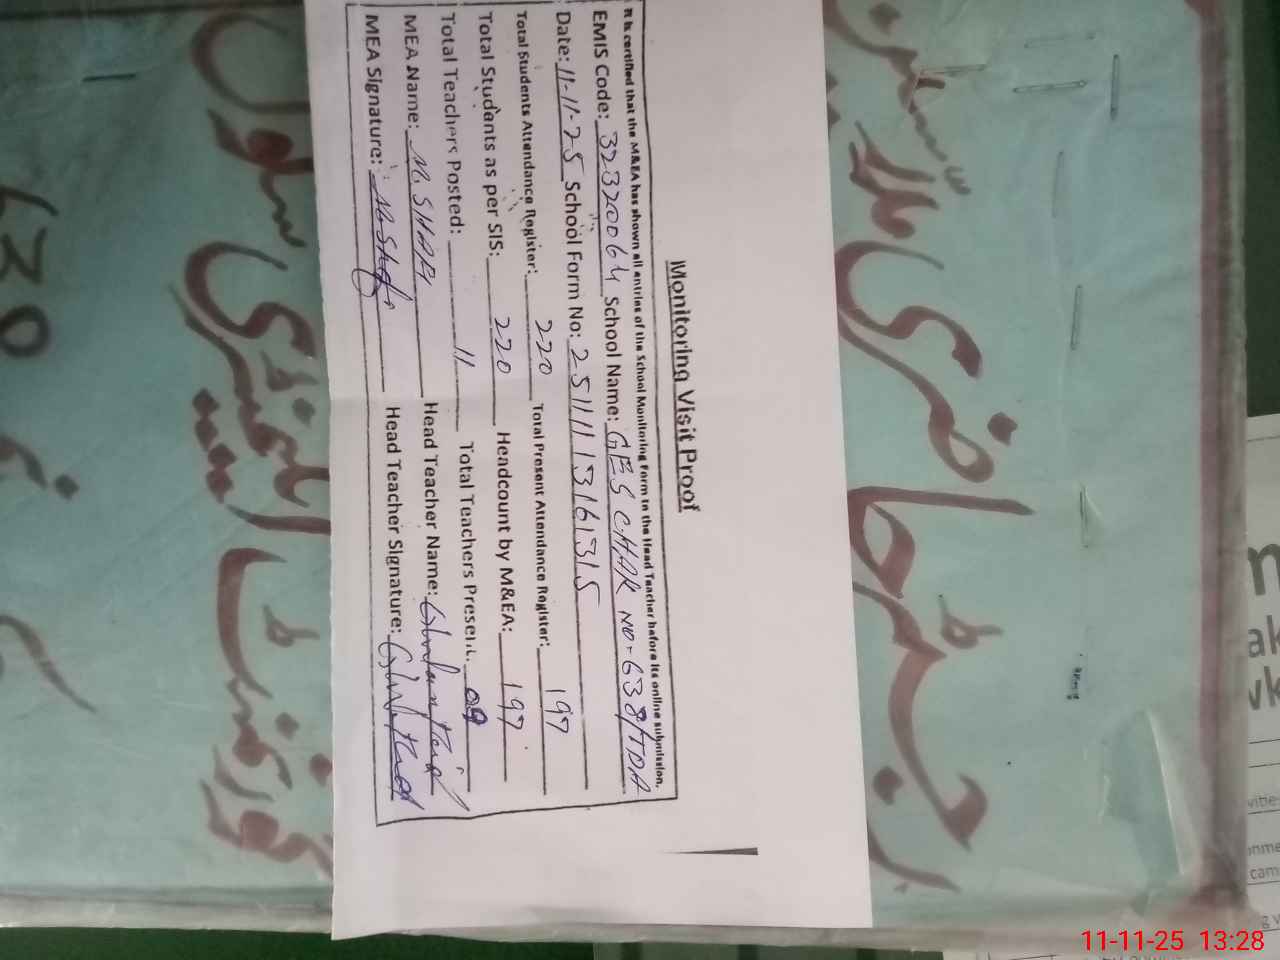 Monitoring Visit Proof
It is certified that the M&EA has shown all entries of the School Monitoring Form to the Head Teacher before its online submission.
EMIS Code: 32320064 School Name: GES CHAK NO-638/TDA
Date: 11-11-25 School Form No: 25111113161315
Total Students Attendance Register: 220 Total Present Attendance Register: 197
Total Students as per SIS: 220 Headcount by M&EA: 197
Total Teachers Posted: 11 Total Teachers Present: 09
MEA Name: M. SHAFI Head Teacher Name:
MEA Signature: M. Shafi Head Teacher Signature:
رجسٹر حاضری
گورنمنٹ ایلیمنٹری سکول
638
11-11-25 13:28